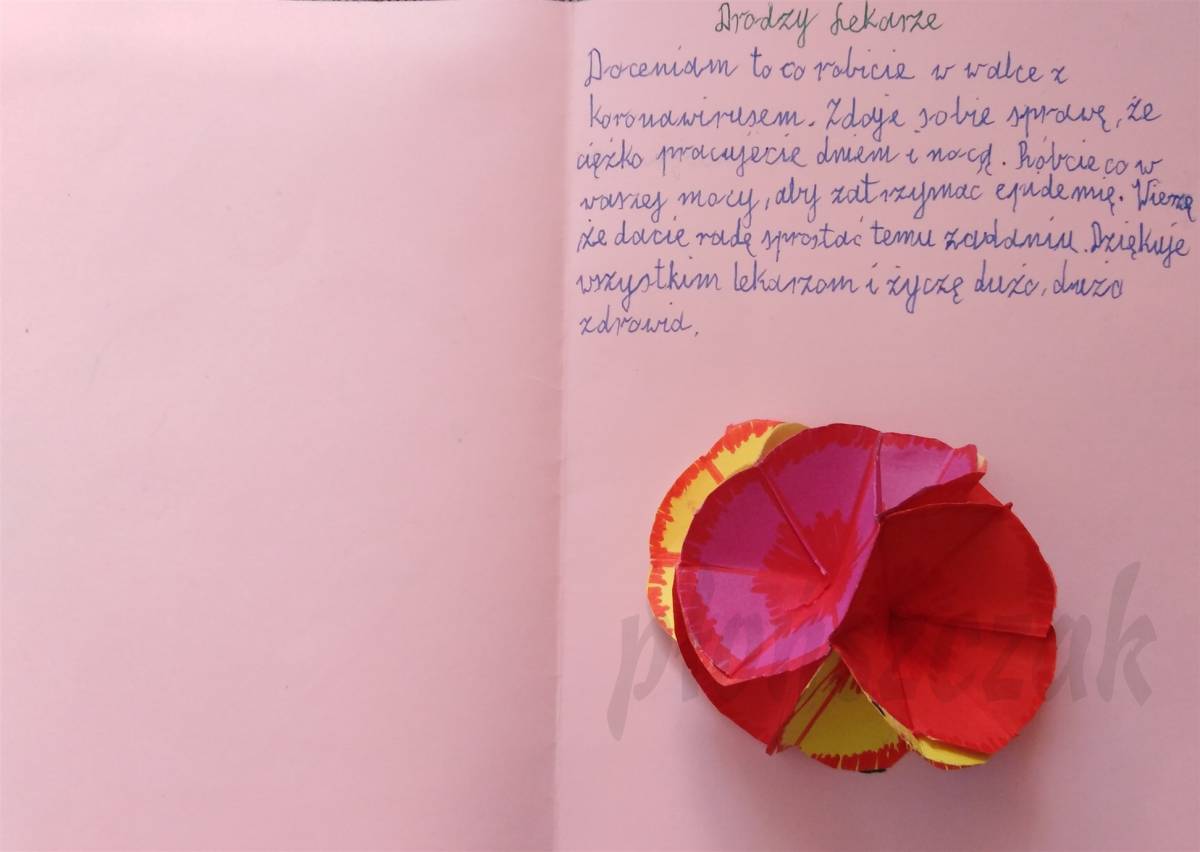 Drodzy Lekarze
Doceniam to co robicie w walce z
koronawirusem. Zdaje sobie sprawę, że
ciężko pracujecie dniem i nocą. Róbcie co w
waszej mocy, aby zatrzymac epidemię. Wierzę
że dacie radę sprostać temu zadaniu. Dziękuje
wszystkim lekarzom i życzę dużo, dużo
zdrowia.